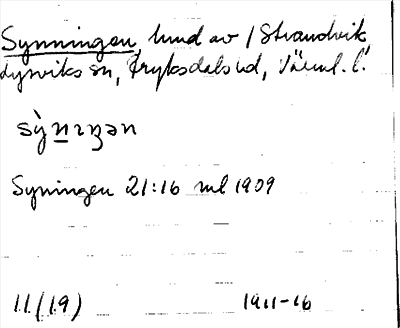 Synningen, lund av / Strandvik
Lysviks sn, Fryksdals hd, Värml. l.
sỳn̲ɪŋən
Syningen 21:16 ml 1909
11(19) 1911-16